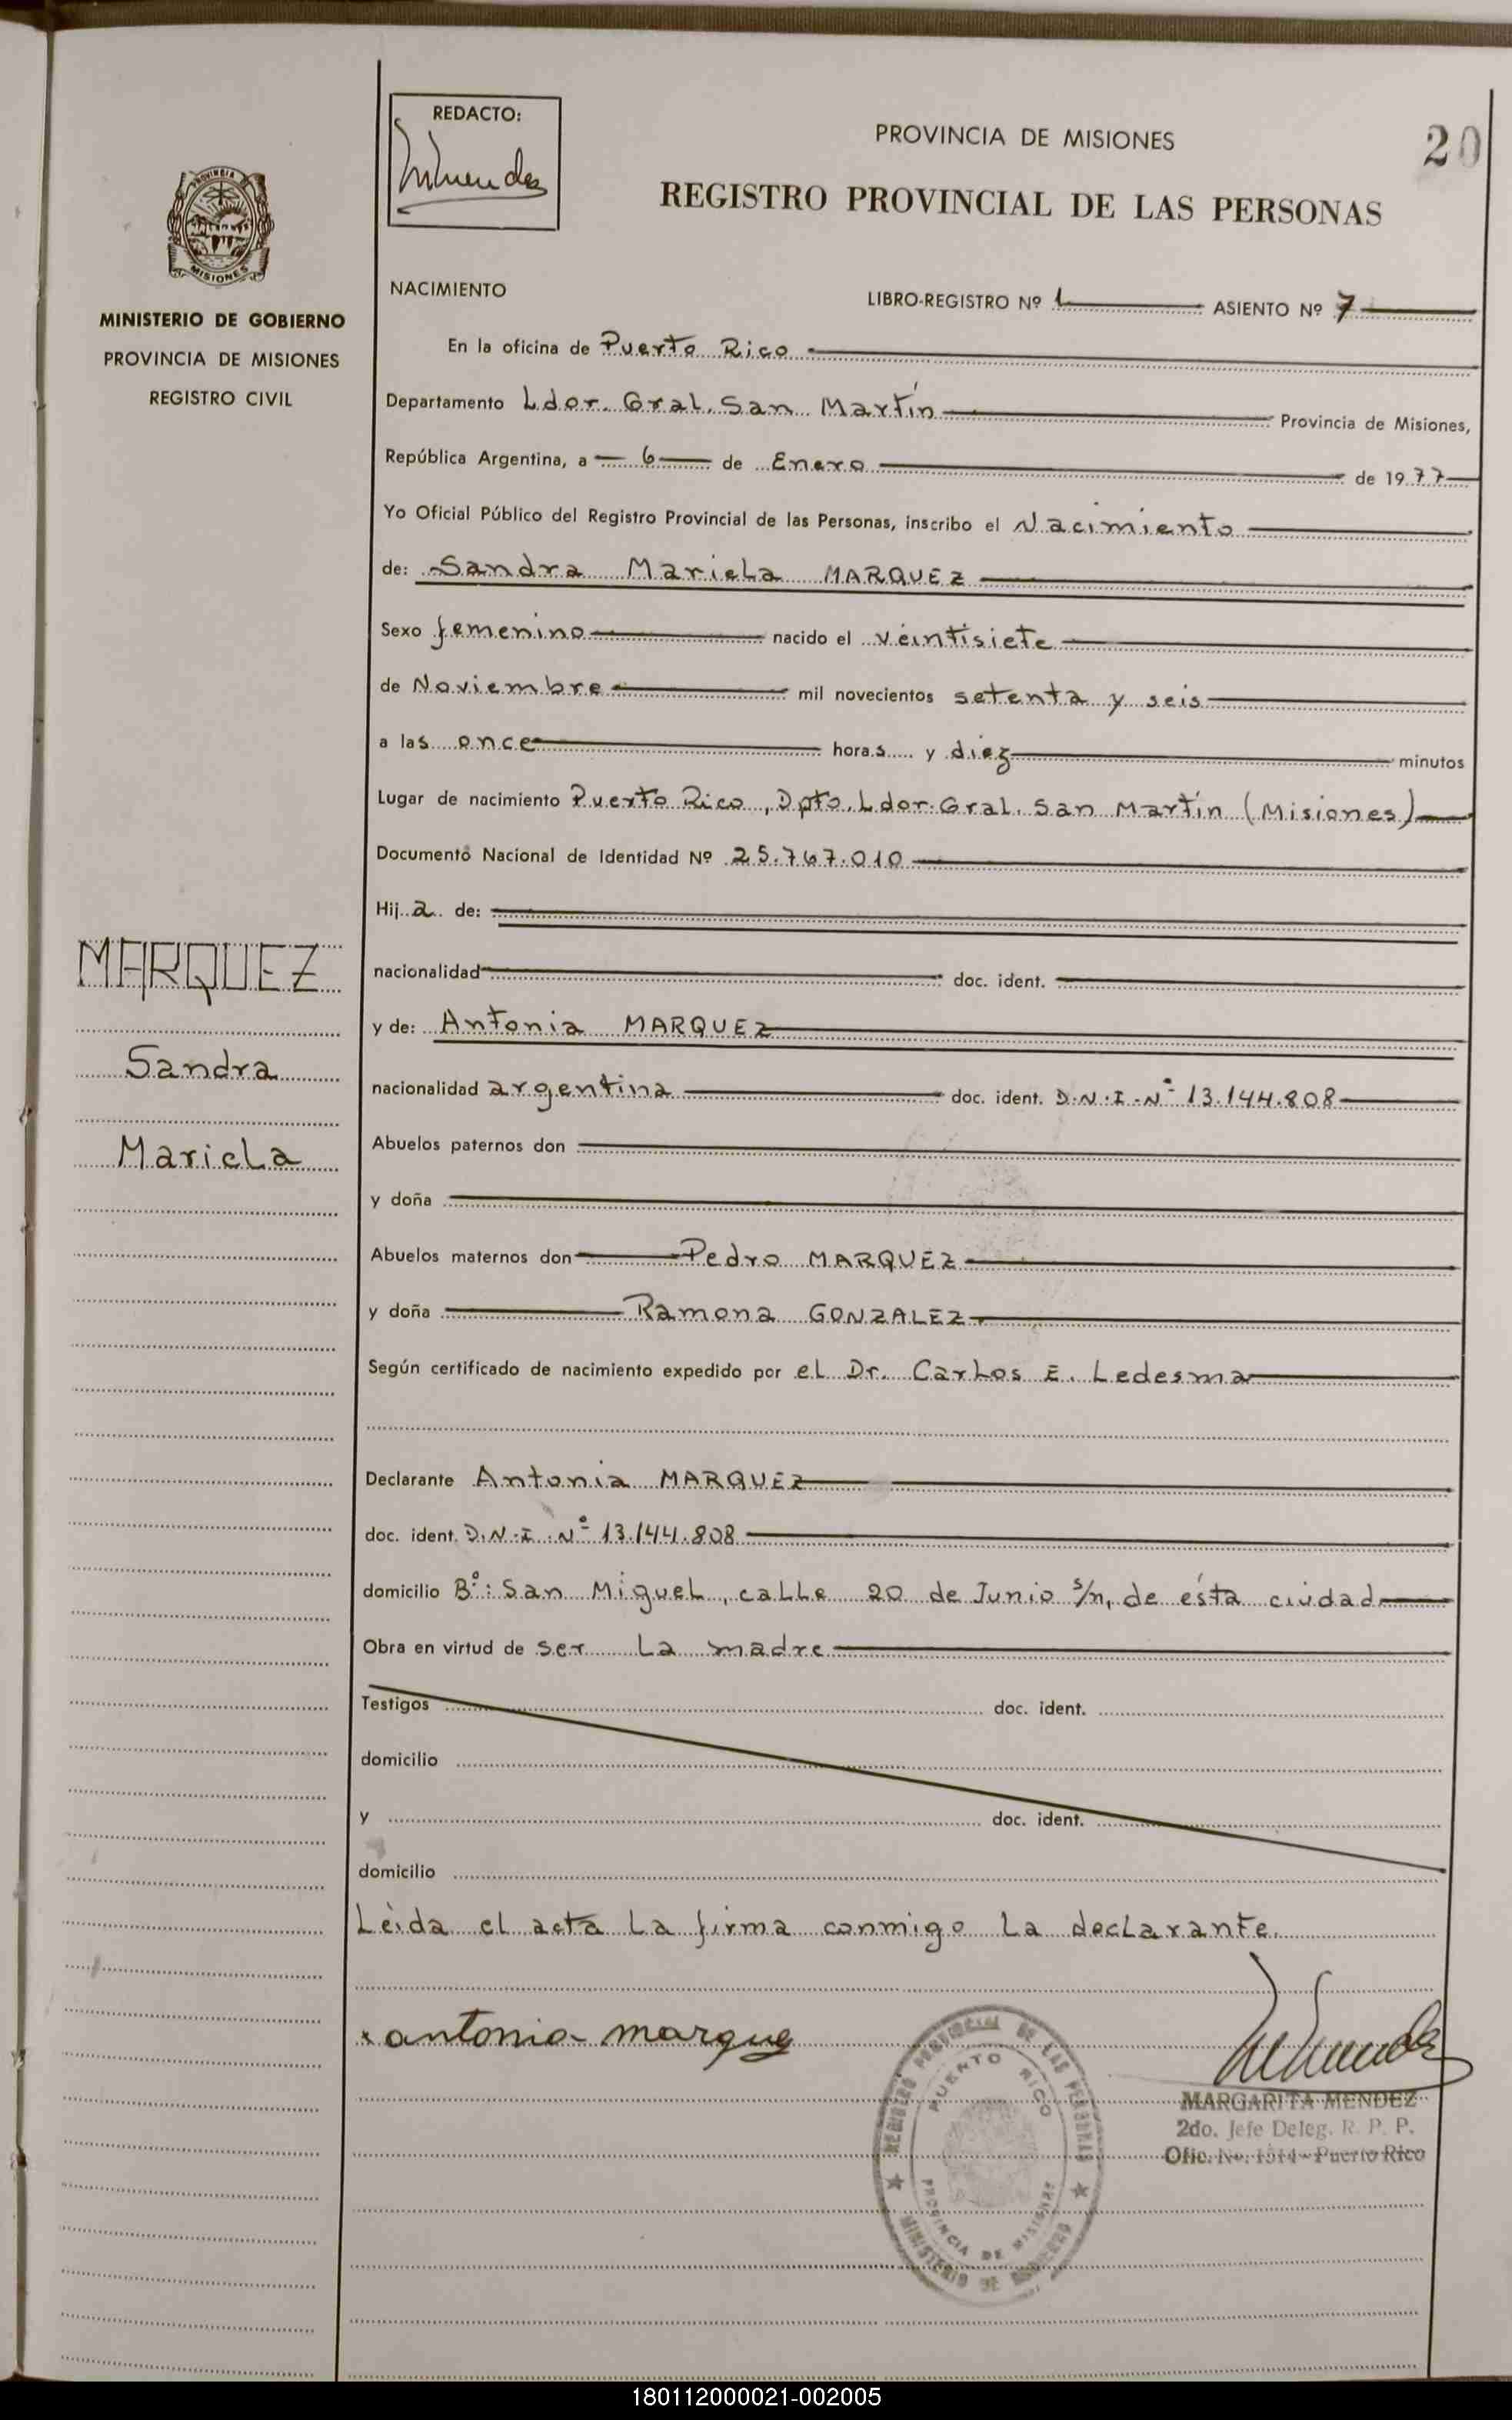 REDACTO:
Mendez
PROVINCIA DE MISIONES
20
REGISTRO PROVINCIAL DE LAS PERSONAS
PROVINCIA
MISIONES
MINISTERIO DE GOBIERNO
PROVINCIA DE MISIONES
REGISTRO CIVIL
NACIMIENTO
LIBRO-REGISTRO Nº 1 ASIENTO Nº 7
En la oficina de Puerto Rico
Departamento Ldor. Gral. San Martín Provincia de Misiones,
República Argentina, a 6 de Enero de 1977
Yo Oficial Público del Registro Provincial de las Personas, inscribo el Nacimiento
de: Sandra Mariela MARQUEZ
Sexo femenino nacido el veintisiete
de Noviembre mil novecientos setenta y seis
a las once horas y diez minutos
Lugar de nacimiento Puerto Rico, Dpto. Ldor. Gral. San Martín (Misiones)
Documento Nacional de Identidad Nº 25.767.010
Hija de:
nacionalidad doc. ident.
y de: Antonia MARQUEZ
nacionalidad argentina doc. ident. D.N.I. Nº 13.144.808
Abuelos paternos don
y doña
Abuelos maternos don Pedro MARQUEZ
y doña Ramona GONZALEZ
Según certificado de nacimiento expedido por el Dr. Carlos E. Ledesma
Declarante Antonia MARQUEZ
doc. ident. D.N.I. Nº 13.144.808
domicilio Bº: San Miguel, calle 20 de Junio s/n, de ésta ciudad
Obra en virtud de ser la madre
Testigos doc. ident.
domicilio
y doc. ident.
domicilio
Leída el acta la firma conmigo la declarante.
MARQUEZ
Sandra
Mariela
x antonia marquez
Mendez
MARGARITA MENDEZ
2do. Jefe Deleg. R. P. P.
Ofic. No. 1514 - Puerto Rico
REGISTRO PROVINCIAL DE LAS PERSONAS
PUERTO RICO
PROVINCIA DE MISIONES
MINISTERIO DE GOBIERNO
180112000021-002005